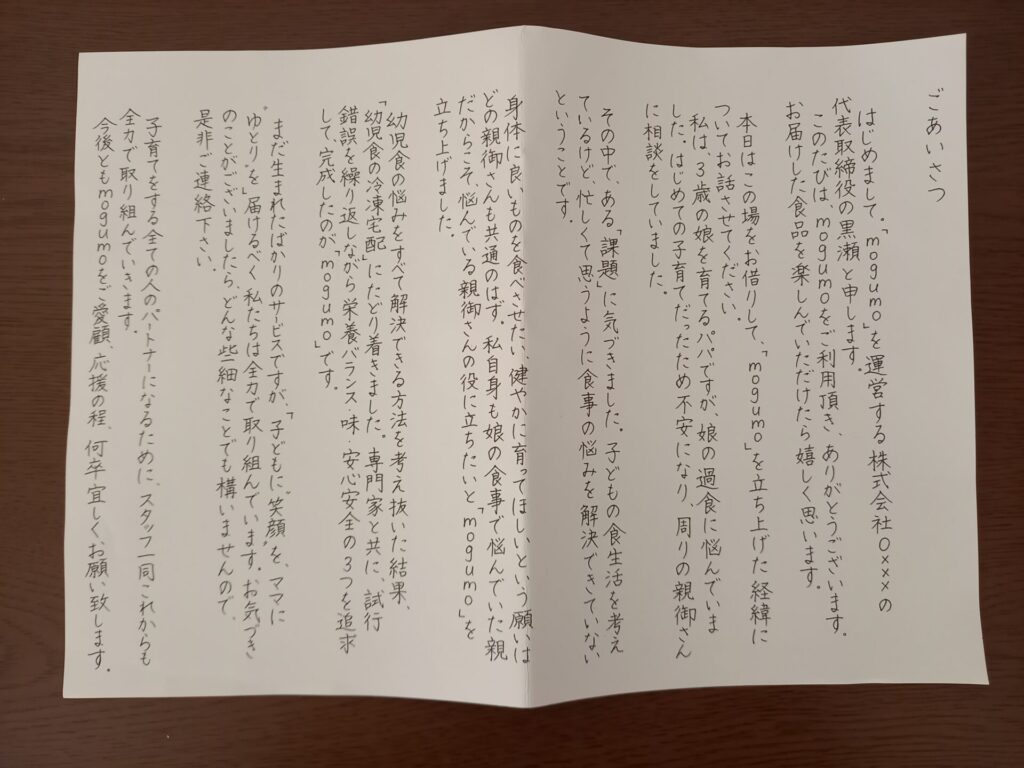 ごあいさつ
はじめまして。「mogumo」を運営する株式会社Oxxxの
代表取締役の黒瀬と申します。
このたびは、mogumoをご利用頂き、ありがとうございます。
お届けした食品を楽しんでいただけたら嬉しく思います。
本日はこの場をお借りして、「mogumo」を立ち上げた経緯に
ついてお話させてください。
私は、3歳の娘を育てるパパですが、娘の過食に悩んでいま
した。はじめての子育てだったため不安になり、周りの親御さん
に相談をしていました。
その中で、ある「課題」に気づきました。子どもの食生活を考え
ているけど、忙しくて思うように食事の悩みを解決できていない
ということです。
身体に良いものを食べさせたい、健やかに育ってほしいという願いは
どの親御さんも共通のはず。私自身も娘の食事で悩んでいた親
だからこそ、悩んでいる親御さんの役に立ちたいと「mogumo」を
立ち上げました。
幼児食の悩みをすべて解決できる方法を考え抜いた結果、
「幼児食の冷凍宅配」にたどり着きました。専門家と共に、試行
錯誤を繰り返しながら栄養バランス・味・安心安全の3つを追求
して、完成したのが「mogumo」です。
まだ生まれたばかりのサービスですが、「子どもに"笑顔"を、ママに
"ゆとり"を」届けるべく、私たちは全力で取り組んでいます。お気づき
のことがございましたら、どんな些細なことでも構いませんので、
是非ご連絡下さい。
子育てをする全ての人のパートナーになるために、スタッフ一同これからも
全力で取り組んでいきます。
今後ともmogumoをご愛顧、応援の程、何卒宜しくお願い致します。